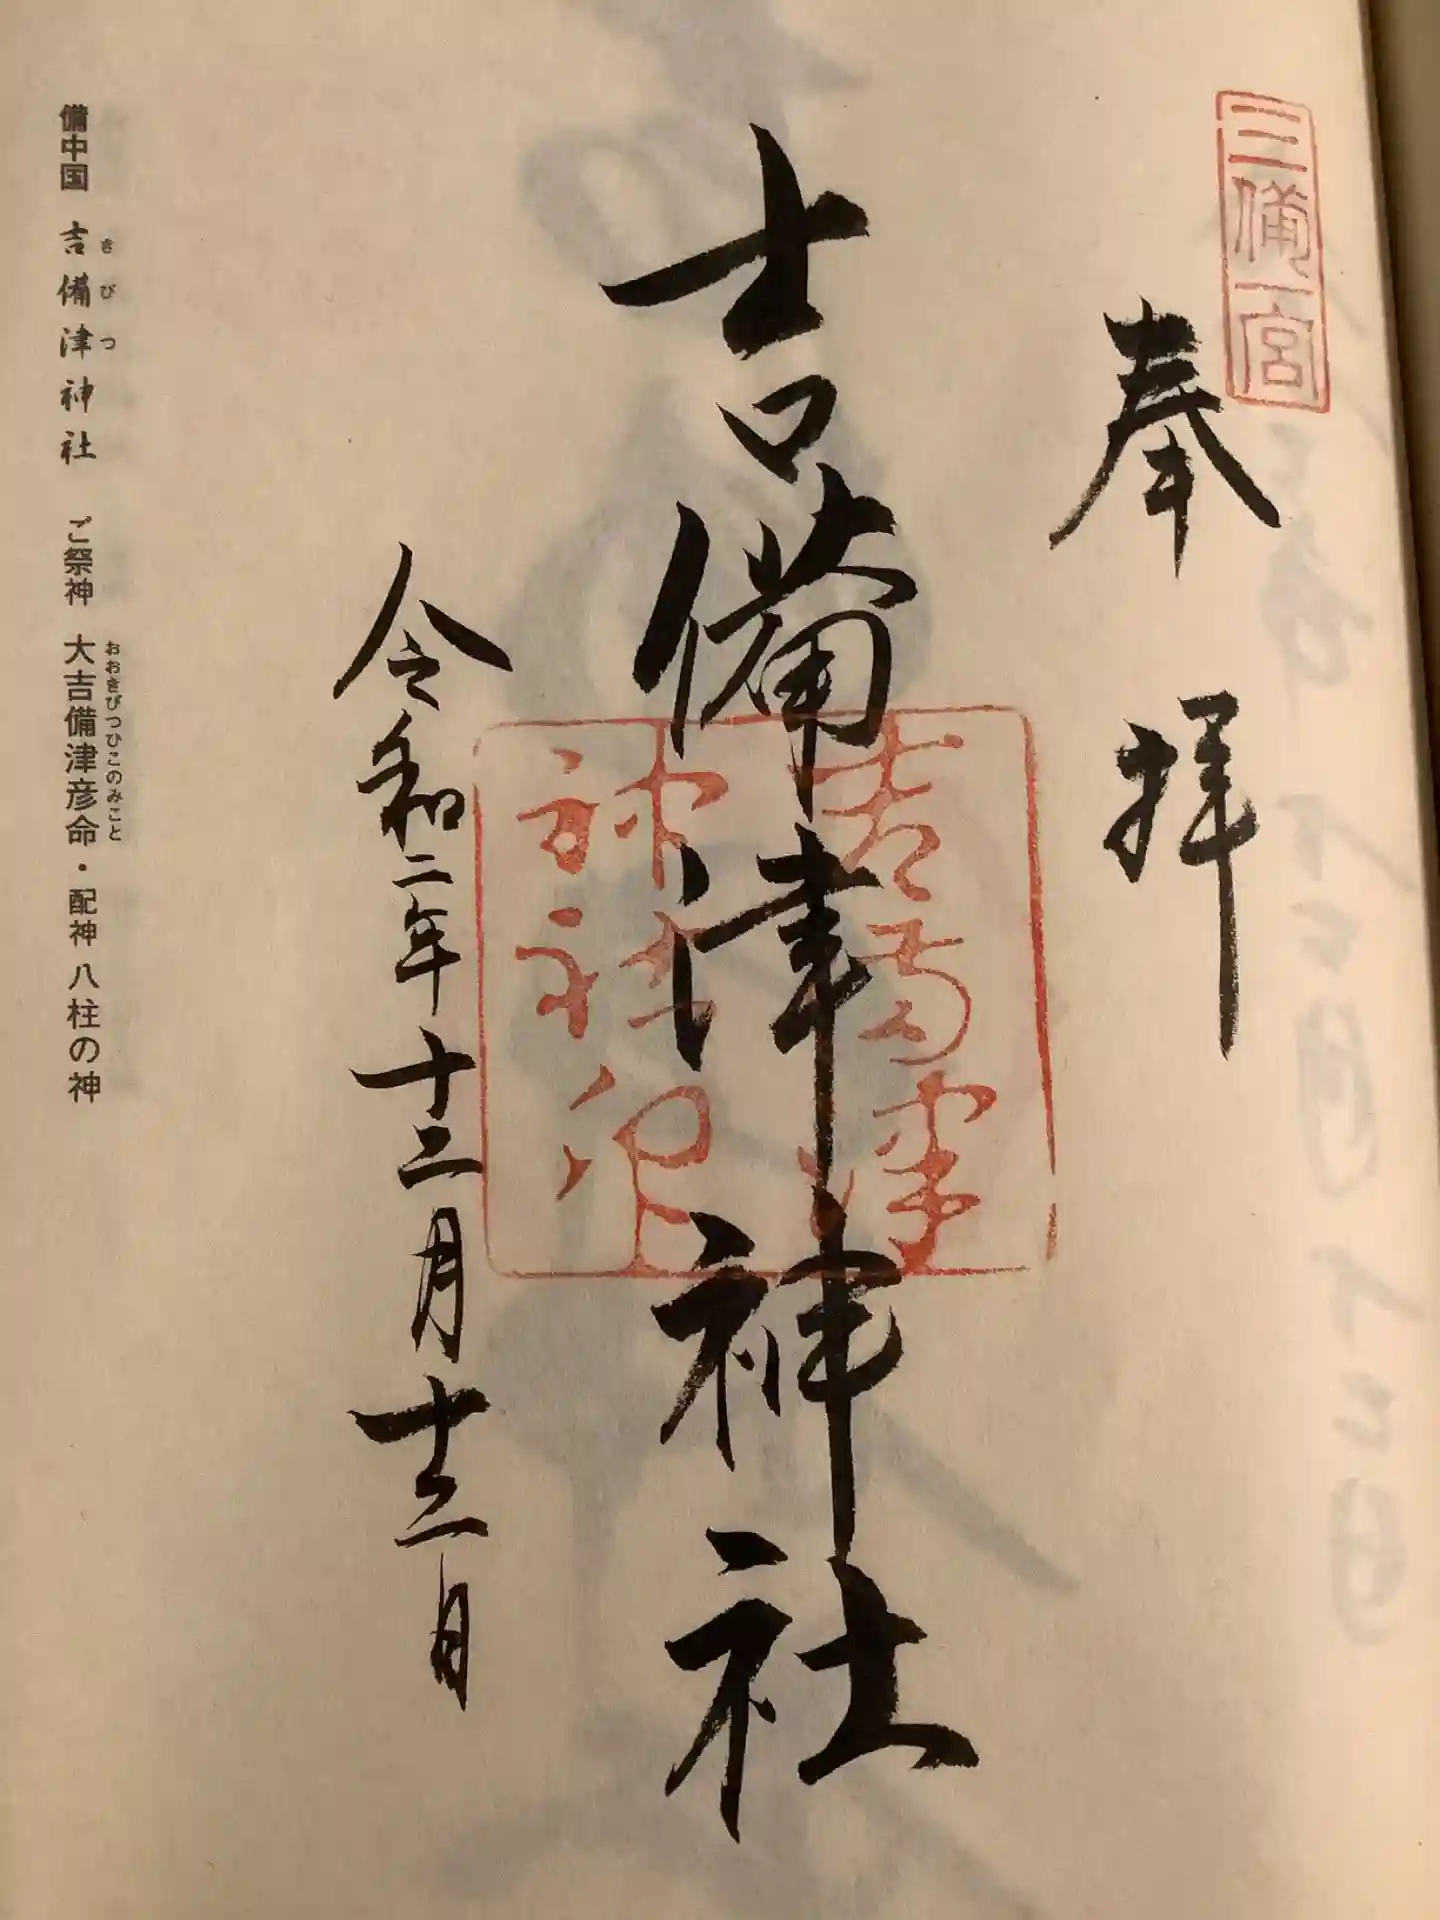 三備一宮
奉拝
吉備津神社
吉備津
神社印
令和二年十二月十二日
備中国 吉備津神社 ご祭神 大吉備津彦命・配神 八柱の神
きびつ
おおきびつひこのみこと